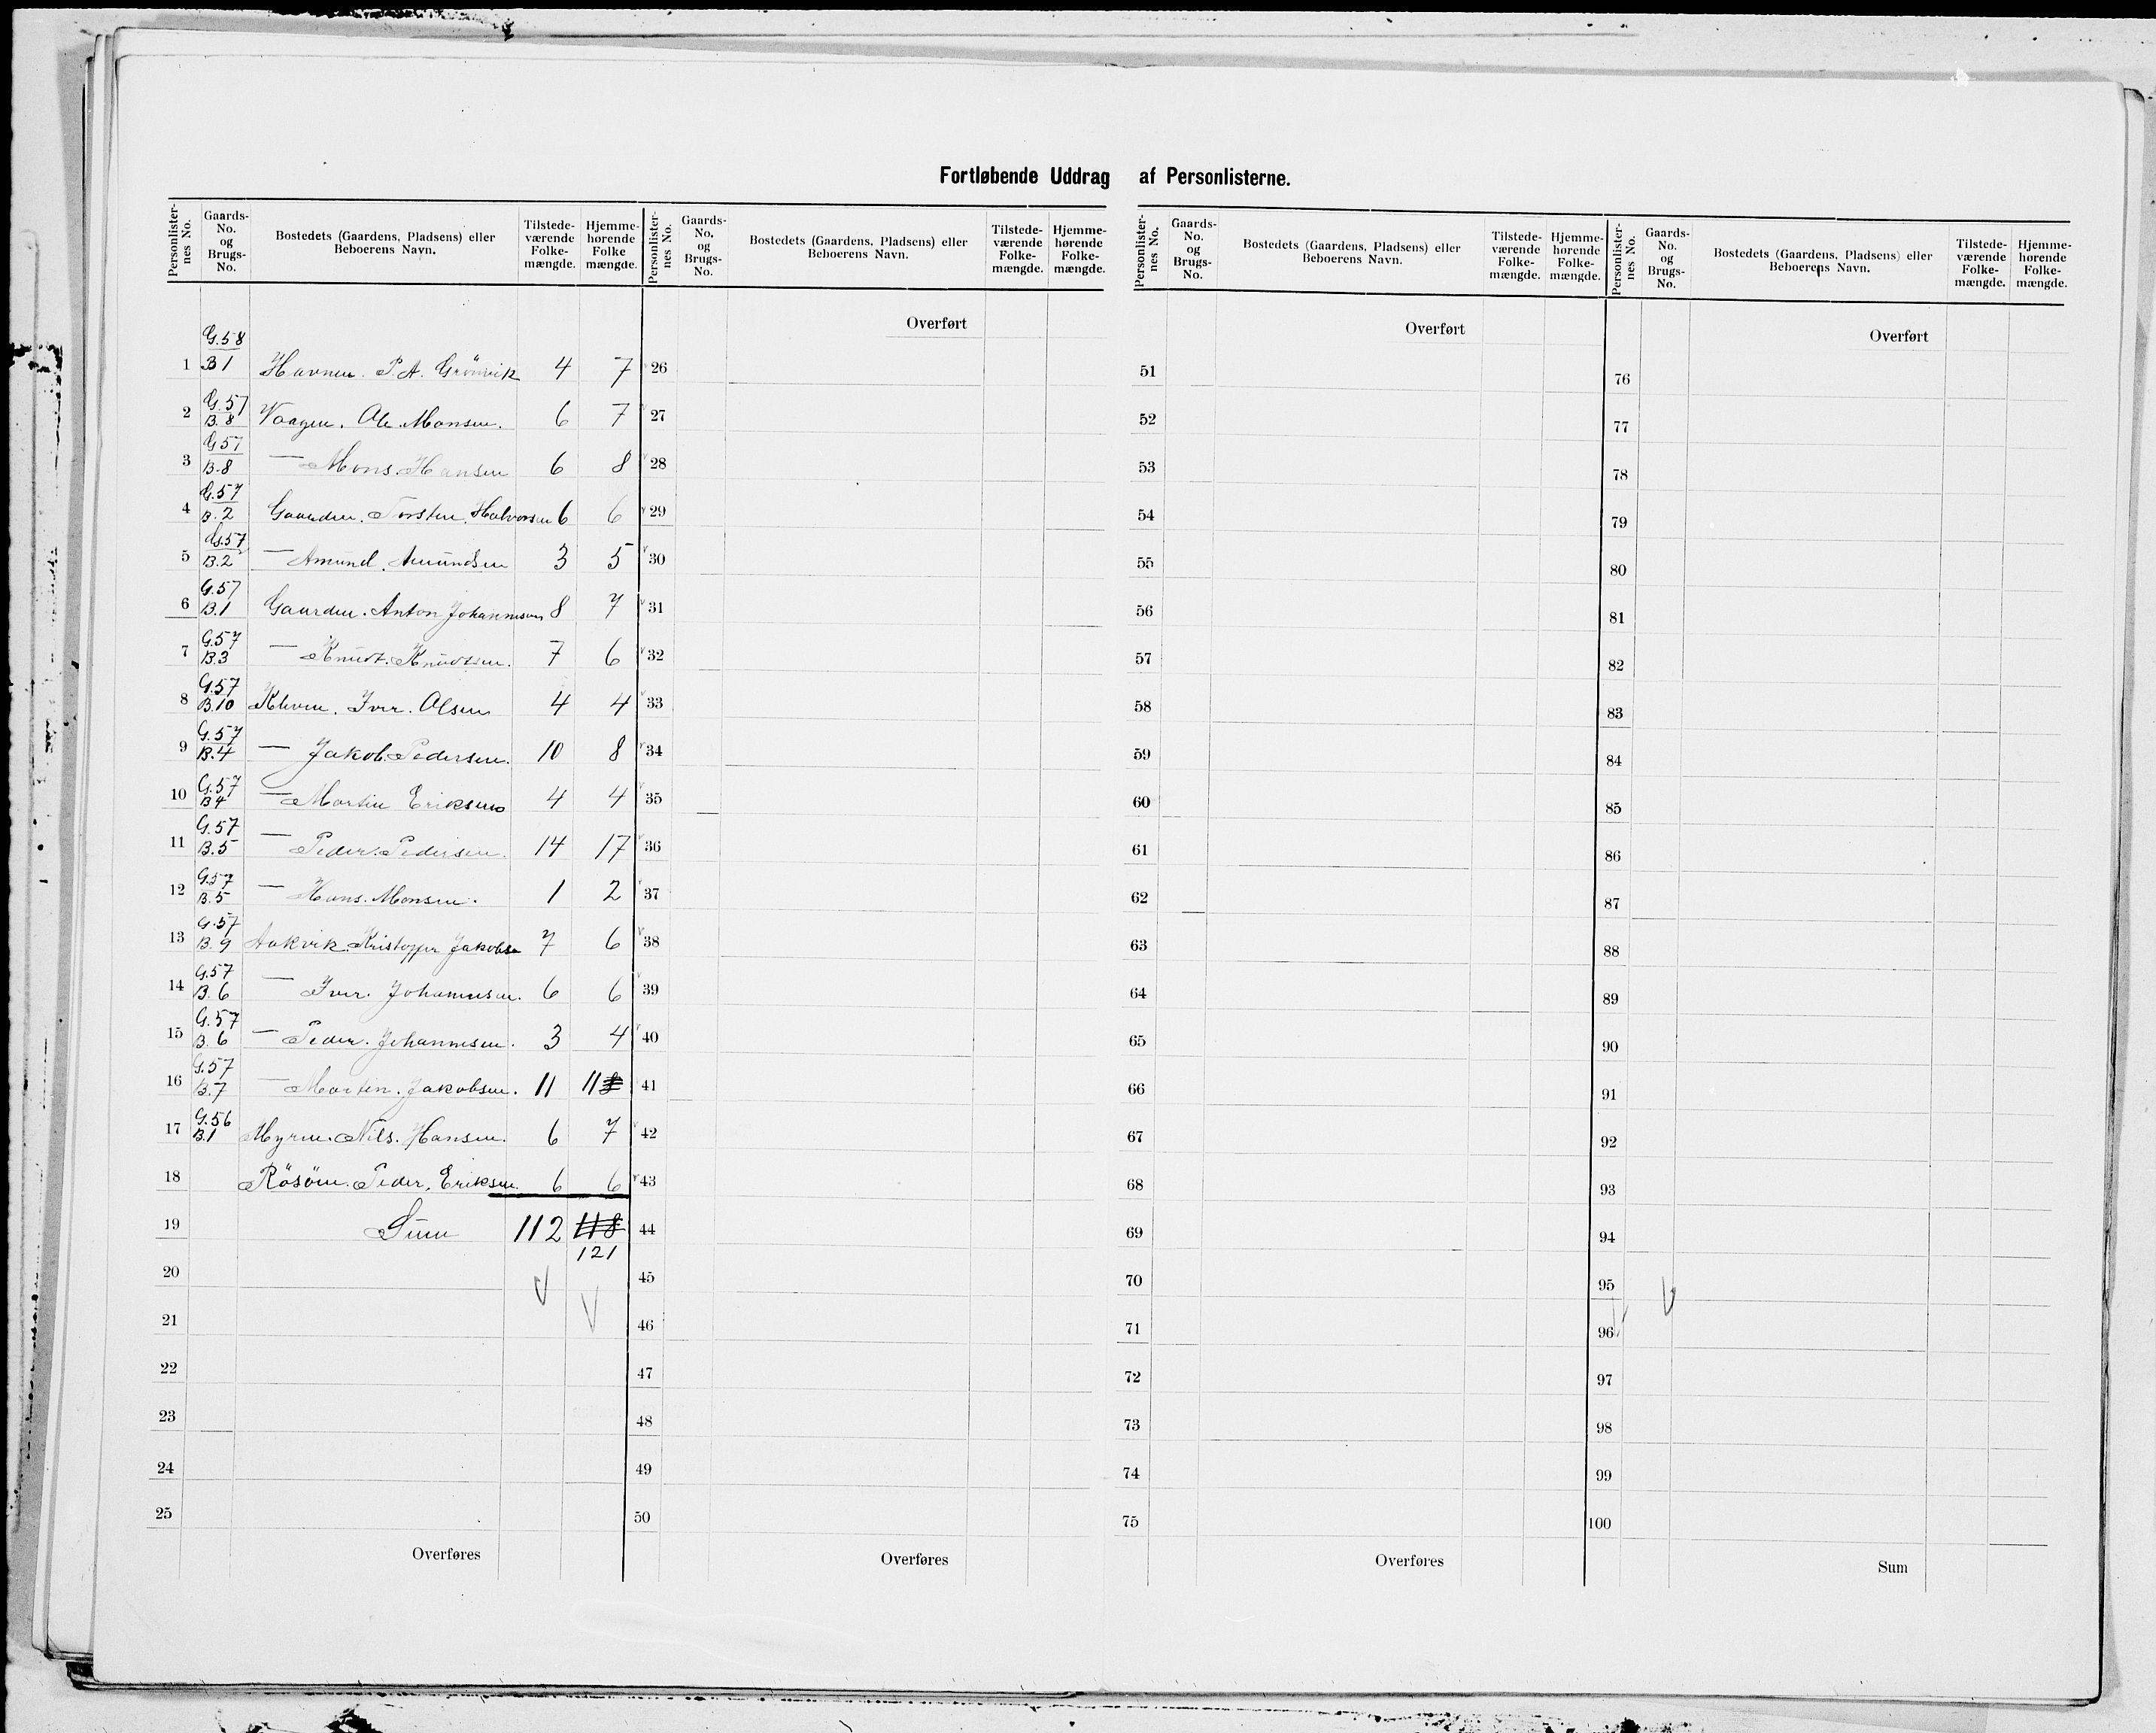 Fortløbende Uddrag af Personlisterne.
Personlister-nes No. Gaards-No. og Brugs-No. Bostedets (Gaardens, Pladsens) eller Beboerens Navn. Tilstede-værende Folke-mængde. Hjemme-hørende Folke mængde.
1 G.58 B1 Havnen. P. A. Grönvik 4 7
2 G.57 B.8 Vaagen. Ole Monsen. 6 7
3 G57 B.8 — Mons. Hansen 6 8
4 G.57 B.2 Gaarden. Torsten. Halvorsen 6 6
5 G.57 B.2 — Amund. Amundsen 3 5
6 G.57 B.1 Gaarden. Anton Johannesen 8 7
7 G.57 B.3 — Knudt. Knudtsen. 7 6
8 G.57 B.10 Kleven. Iver. Olsen 4 4
9 G.57 B.4 — Jakob Pedersen. 10 8
10 G.57 B4 — Martin Eriksen 4 4
11 G.57 B.5 — Peder. Pedersen. 14 17
12 G.57 B.5 — Hans. Monsen. 1 2
13 G.57 B.9 Aakvik. Kristoffer Jakobsen 7 6
14 G.57 B.6 — Iver. Johannesen. 6 6
15 G.57 B.6 — Peder. Johannesen. 3 4
16 G.57 B.7 — Martin. Jakobsen. 11 11 8
17 G.56 B.1 Myren. Nils. Hansen. 6 7
18 Rösöen. Peder. Eriksen. 6 6
19 Sum 112 118
121
20
21
22
23
24
25
Overføres
Personlister-nes No. Gaards-No. og Brugs-No. Bostedets (Gaardens, Pladsens) eller Beboerens Navn. Tilstede-værende Folke-mængde. Hjemme-hørende Folke-mængde.
Overført
26
27
28
29
30
31
32
33
34
35
36
37
38
39
40
41
42
43
44
45
46
47
48
49
50
Overføres
Personlister-nes No. Gaards-No. og Brugs-No. Bostedets (Gaardens, Pladsens) eller Beboerens Navn. Tilstede-værende Folke-mængde. Hjemme-hørende Folke-mængde.
Overført
51
52
53
54
55
56
57
58
59
60
61
62
63
64
65
66
67
68
69
70
71
72
73
74
75
Overføres
Personlister-nes No. Gaards-No. og Brugs-No. Bostedets (Gaardens, Pladsens) eller Beboerens Navn. Tilstede-værende Folke-mængde. Hjemme-hørende Folke-mængde.
Overført
76
77
78
79
80
81
82
83
84
85
86
87
88
89
90
91
92
93
94
95
96
97
98
99
100
Sum